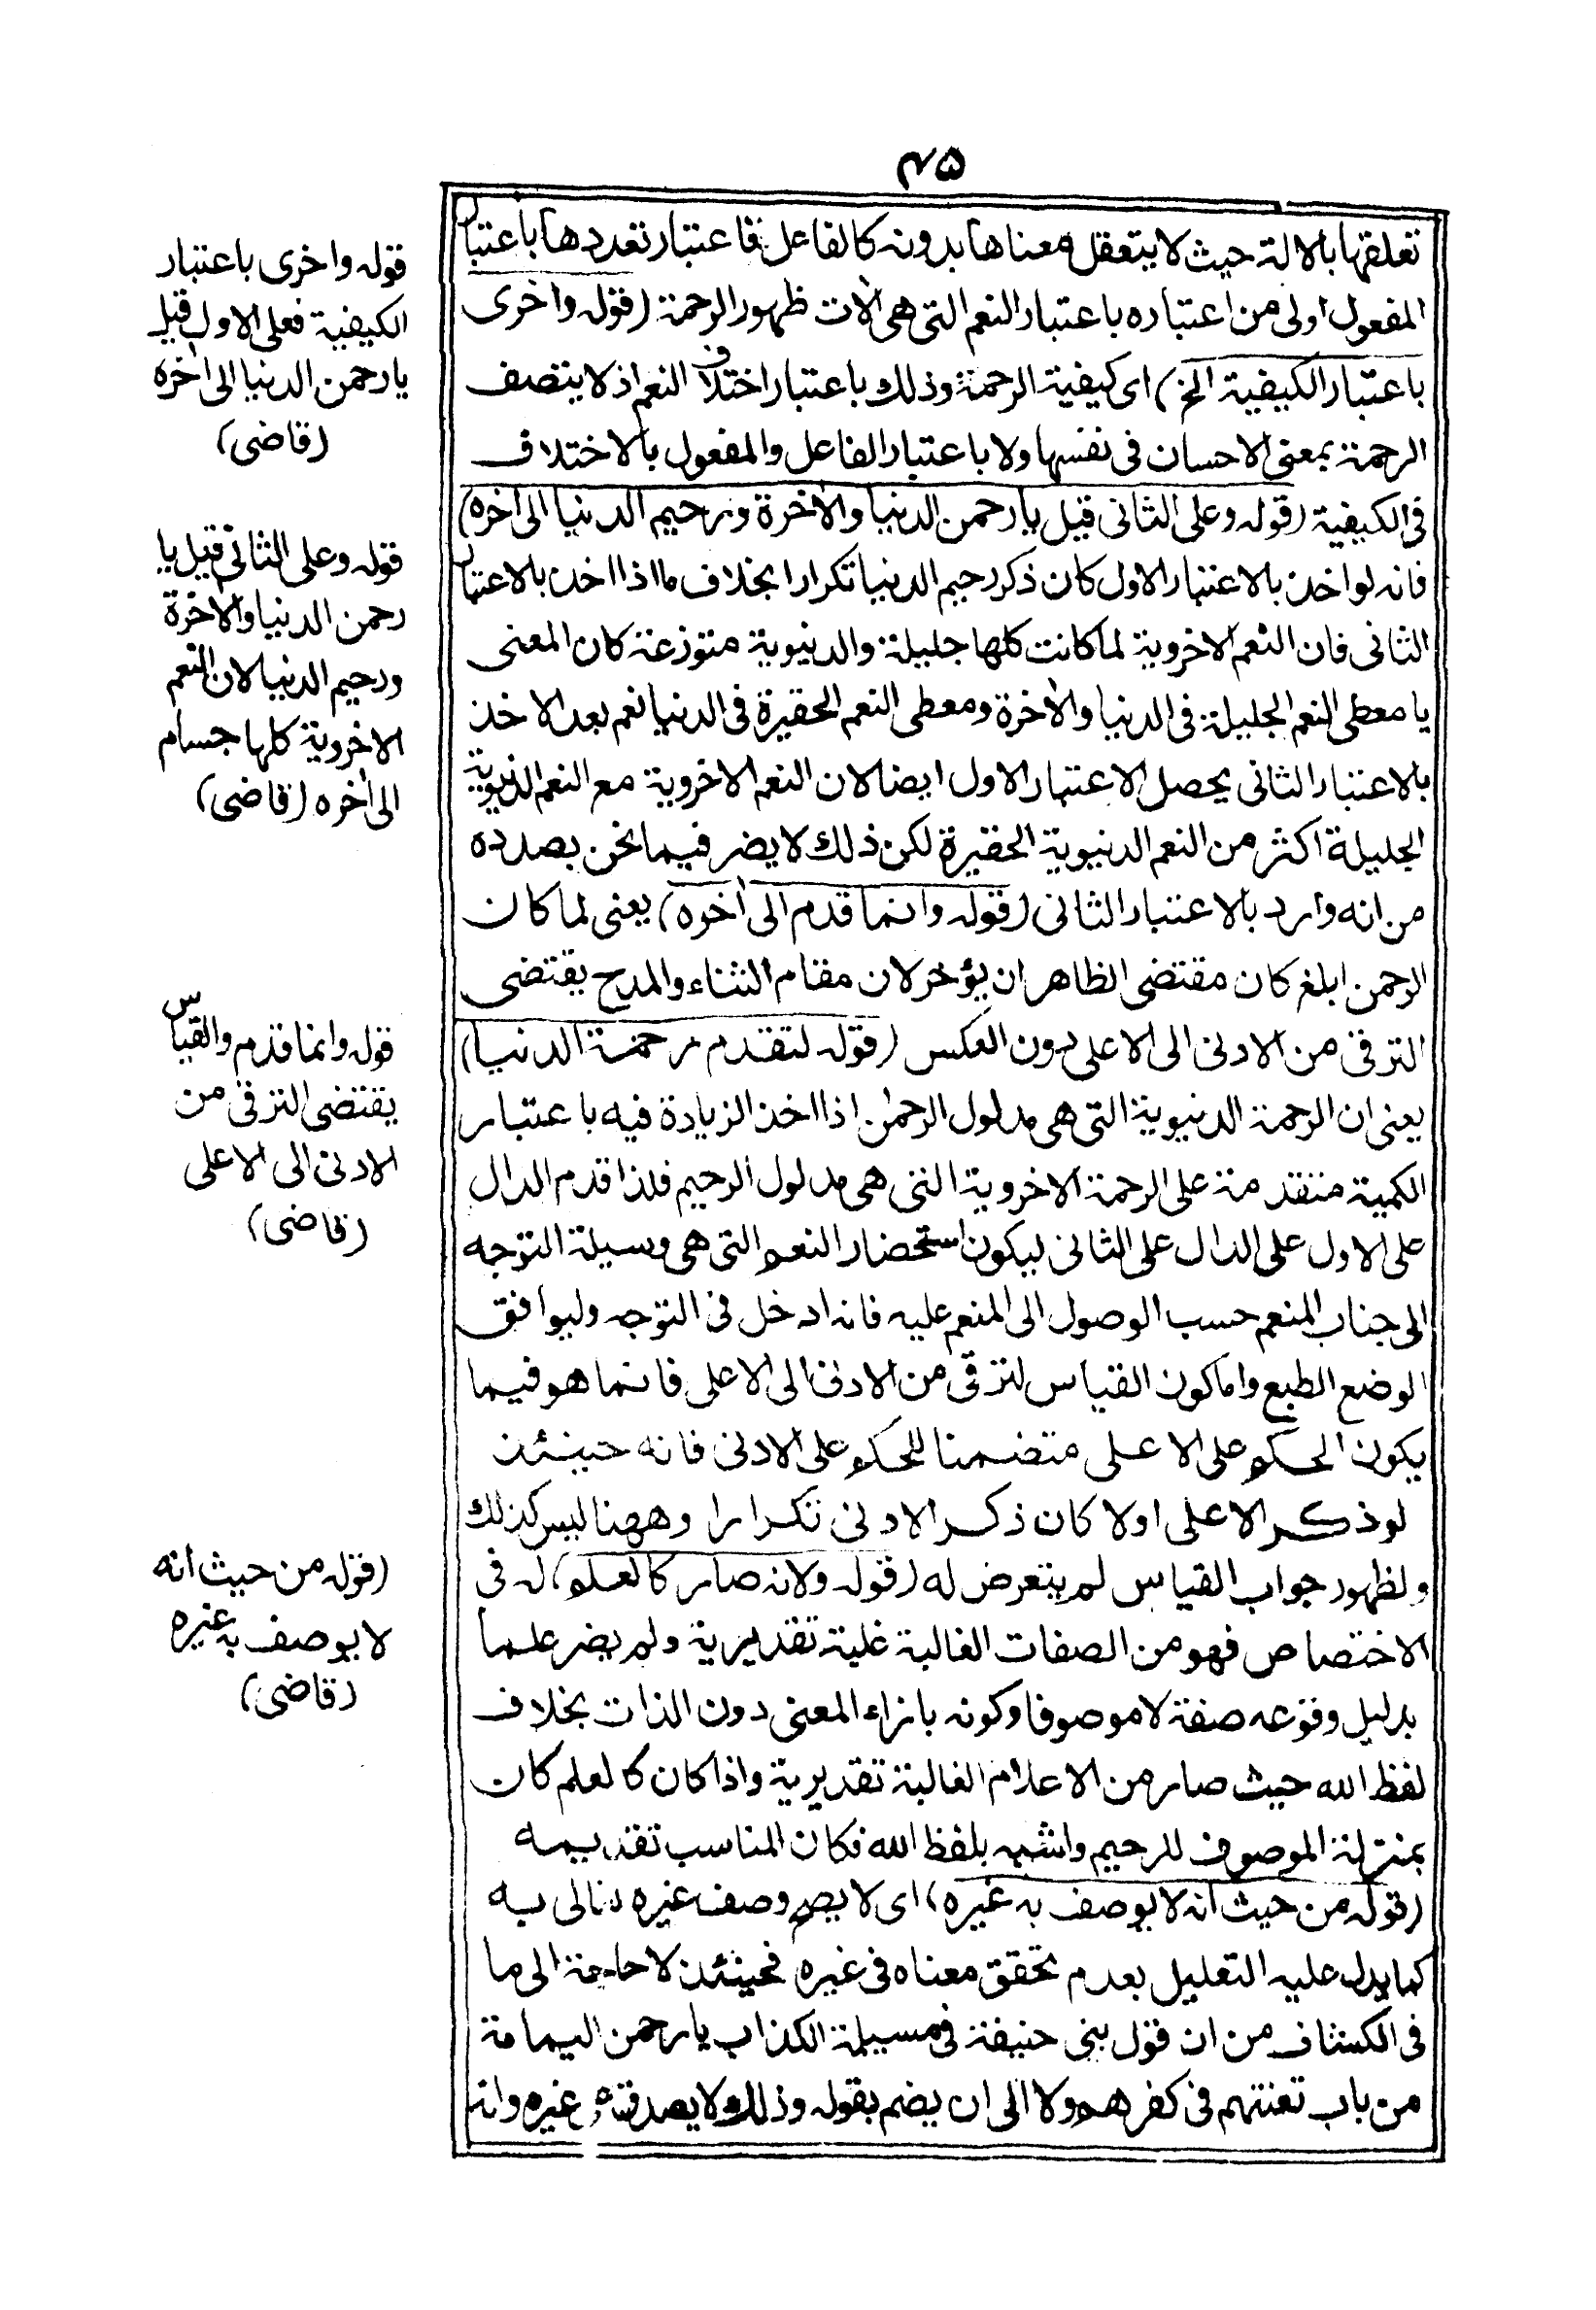 ٤٥
تعلقها بالالة حيث لا يتعقل معناها بدونه كالفاعل فاعتبار تعددها باعتبار
المفعول اولى من اعتباره باعتبار النعم التى هى الات ظهور الرحمة (قوله واخرى
باعتبار الكيفية الخ) اى كيفية الرحمة وذلك باعتبار اختلاف النعم اذ لا يتصف
الرحمة بمعنى الاحسان فى نفسها ولا باعتبار الفاعل والمفعول بالاختلاف
فى الكيفية (قوله وعلى الثانى قيل يا رحمن الدنيا والاخرة ورحيم الدنيا الى اخره)
فانه لو اخذ بالاعتبار الاول كان ذكر رحيم الدنيا تكرارا بخلاف ما اذا اخذ بالاعتبار
الثانى فان النعم الاخروية لما كانت كلها جليلة والدنيوية متوزعة كان المعنى
يا معطى النعم الجليلة فى الدنيا والاخرة ومعطى النعم الحقيرة فى الدنيا نعم بعد الاخذ
بالاعتبار الثانى يحصل الاعتبار الاول ايضا لان النعم الاخروية مع النعم الدنيوية
الجليلة اكثر من النعم الدنيوية الحقيرة لكن ذلك لا يضر فيما نحن بصدده
من انه وارد بالاعتبار الثانى (قوله وانما قدم الى اخره) يعنى لما كان
الرحمن ابلغ كان مقتضى الظاهر ان يؤخر لان مقام الثناء والمدح يقتضى
الترقى من الادنى الى الاعلى دون العكس (قوله لتقدم رحمة الدنيا)
يعنى ان الرحمة الدنيوية التى هى مدلول الرحمن اذا اخذ الزيادة فيه باعتبار
الكمية متقدمة على الرحمة الاخروية التى هى مدلول الرحيم فلذا قدم الدال
على الاول على الدال على الثانى ليكون استحضار النعم التى هى وسيلة التوجه
الى جناب المنعم حسب الوصول الى المنعم عليه فانه ادخل فى التوجه وليوافق
الوضع الطبع واما كون القياس لترقى من الادنى الى الاعلى فانما هو فيما
يكون الحكم على الاعلى متضمنا للحكم على الادنى فانه حينئذ
لو ذكر الاعلى اولا كان ذكر الادنى تكرارا وههنا ليس كذلك
ولظهور جواب القياس لم يتعرض له (قوله ولانه صار كالعلم) له فى
الاختصاص فهو من الصفات الغالبة غلبة تقديرية ولم يضر علما
بدليل وقوعه صفة لا موصوفا وكونه بازاء المعنى دون الذات بخلاف
لفظ الله حيث صار من الاعلام الغالبة تقديرية واذا كان كالعلم كان
بمنزلة الموصوف للرحيم واشبه بلفظ الله فكان المناسب تقديمه
(قوله من حيث انه لا يوصف به غيره) اى لا يصح وصف غيره تعالى به
كما يدل عليه التعليل بعدم تحقق معناه فى غيره فحينئذ لا حاجة الى ما
فى الكشاف من ان قول بنى حنيفة فى مسيلمة الكذاب يا رحمن اليمامة
من باب تعنتهم فى كفرهم ولا الى ان يضم بقوله وذلك لا يصدق غيره وانه
قوله واخرى باعتبار
الكيفية فعلى الاول قيل
يا رحمن الدنيا الى اخره
(قاضى)
قوله وعلى الثانى قيل يا
رحمن الدنيا والاخرة
ورحيم الدنيا لان النعم
الاخروية كلها جسام
الى اخره (قاضى)
قوله وانما قدم والقياس
يقتضى الترقى من
الادنى الى الاعلى
(قاضى)
(قوله من حيث انه
لا يوصف به غيره
(قاضى)